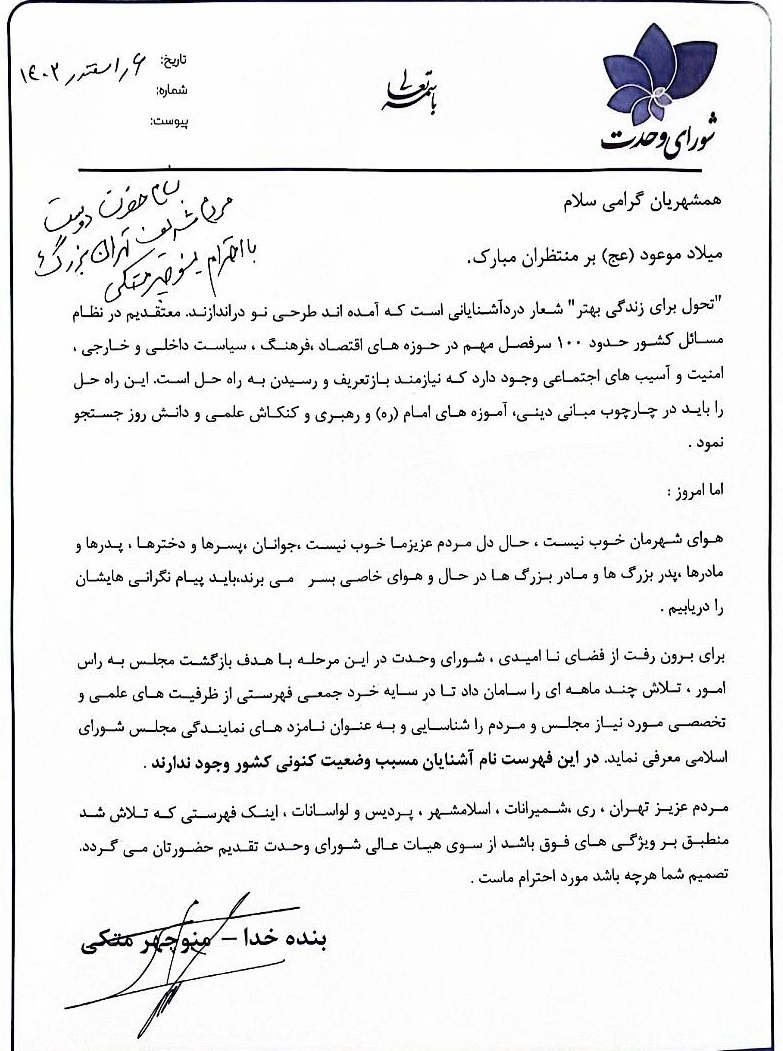 شورای وحدت
باسمه تعالی
تاریخ: ۶ / اسفند / ۱۴۰۲
شماره:
پیوست:
بنام حضرت دوست
مردم شریف تهران بزرگ
با احترام منوچهر متکی
همشهریان گرامی سلام
میلاد موعود (عج) بر منتظران مبارک.
"تحول برای زندگی بهتر" شعار دردآشنایانی است که آمده اند طرحی نو دراندازند. معتقدیم در نظام
مسائل کشور حدود ۱۰۰ سرفصل مهم در حوزه های اقتصاد ،فرهنگ ، سیاست داخلی و خارجی ،
امنیت و آسیب های اجتماعی وجود دارد که نیازمند بازتعریف و رسیدن به راه حل است. این راه حل
را باید در چارچوب مبانی دینی، آموزه های امام (ره) و رهبری و کنکاش علمی و دانش روز جستجو
نمود .
اما امروز :
هوای شهرمان خوب نیست ، حال دل مردم عزیزما خوب نیست ،جوانان ،پسرها و دخترها ، پدرها و
مادرها ،پدر بزرگ ها و مادر بزرگ ها در حال و هوای خاصی بسر می برند،باید پیام نگرانی هایشان
را دریابیم .
برای برون رفت از فضای نا امیدی ، شورای وحدت در این مرحله با هدف بازگشت مجلس به راس
امور ، تلاش چند ماهه ای را سامان داد تا در سایه خرد جمعی فهرستی از ظرفیت های علمی و
تخصصی مورد نیاز مجلس و مردم را شناسایی و به عنوان نامزد های نمایندگی مجلس شورای
اسلامی معرفی نماید. در این فهرست نام آشنایان مسبب وضعیت کنونی کشور وجود ندارند .
مردم عزیز تهران ، ری ،شمیرانات ، اسلامشهر ، پردیس و لواسانات ، اینک فهرستی که تلاش شد
منطبق بر ویژگی های فوق باشد از سوی هیات عالی شورای وحدت تقدیم حضورتان می گردد.
تصمیم شما هرچه باشد مورد احترام ماست .
بنده خدا – منوچهر متکی